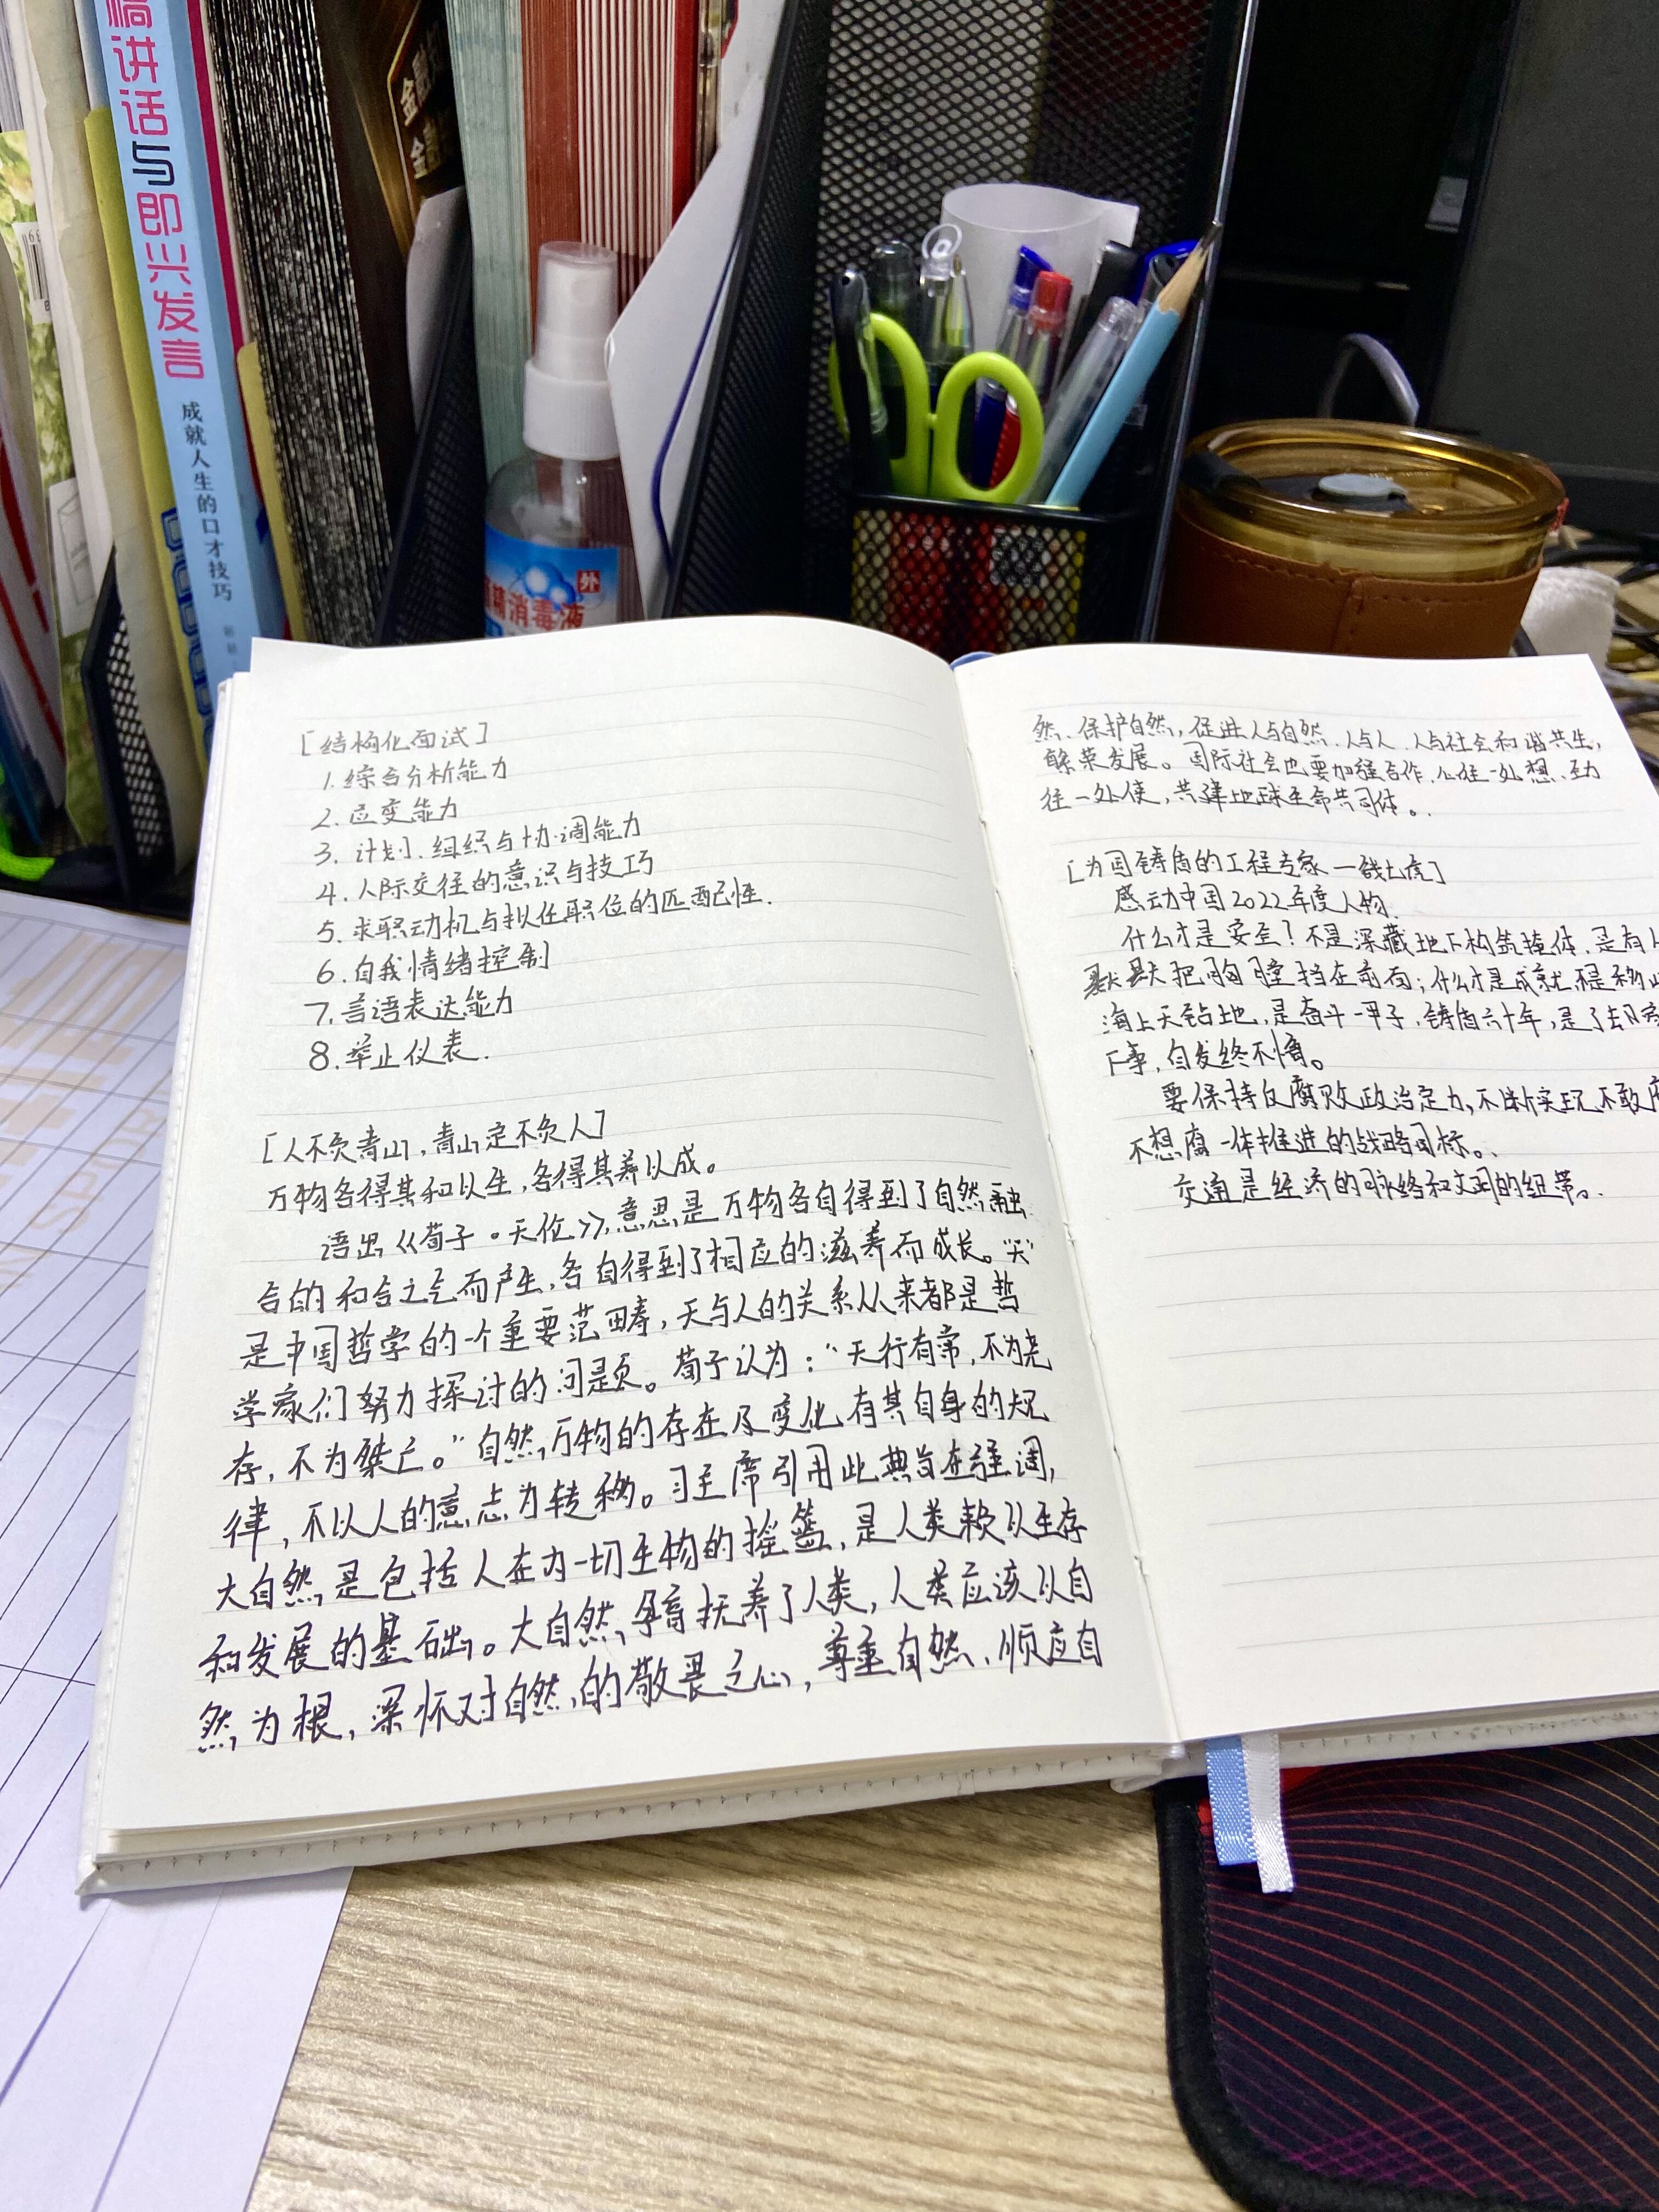 稿讲话与即兴发言
成就人生的口才技巧
金融
金融
外
精消毒液
[结构化面试]
1.综合分析能力
2.应变能力
3.计划、组织与协调能力
4.人际交往的意识与技巧
5.求职动机与拟任职位的匹配性.
6.自我情绪控制
7.言语表达能力
8.举止仪表.
[人不负青山,青山定不负人]
万物各得其和以生,各得其养以成。
语出《荀子·天伦》,意思是万物各自得到了自然融
合的和合之气而产生,各自得到了相应的滋养而成长。“天”
是中国哲学的一个重要范畴,天与人的关系从来都是哲
学家们努力探讨的问题。荀子认为:“天行有常,不为尧
存,不为桀亡。”自然万物的存在及变化有其自身的规
律,不以人的意志为转移。习主席引用此典旨在强调,
大自然是包括人在内一切生物的摇篮,是人类赖以生存
和发展的基础。大自然孕育抚养了人类,人类应该以自
然为根,深怀对自然的敬畏之心,尊重自然、顺应自
然、保护自然,促进人与自然、人与人、人与社会和谐共生,
繁荣发展。国际社会也要加强合作,心往一处想、劲
往一处使,共建地球生命共同体。
[为国铸盾的工程专家—钱七虎]
感动中国2022年度人物.
什么才是安全?不是深藏地下构筑掩体,是有人
默默把胸膛挡在前面;什么才是成就?不是移山
海上天钻地,是奋斗一甲子,铸盾六十年,是了却
下事,白发终不悔。
要保持反腐败政治定力,不断实现不敢腐
不想腐一体推进的战略目标。
交通是经济的脉络和文明的纽带。